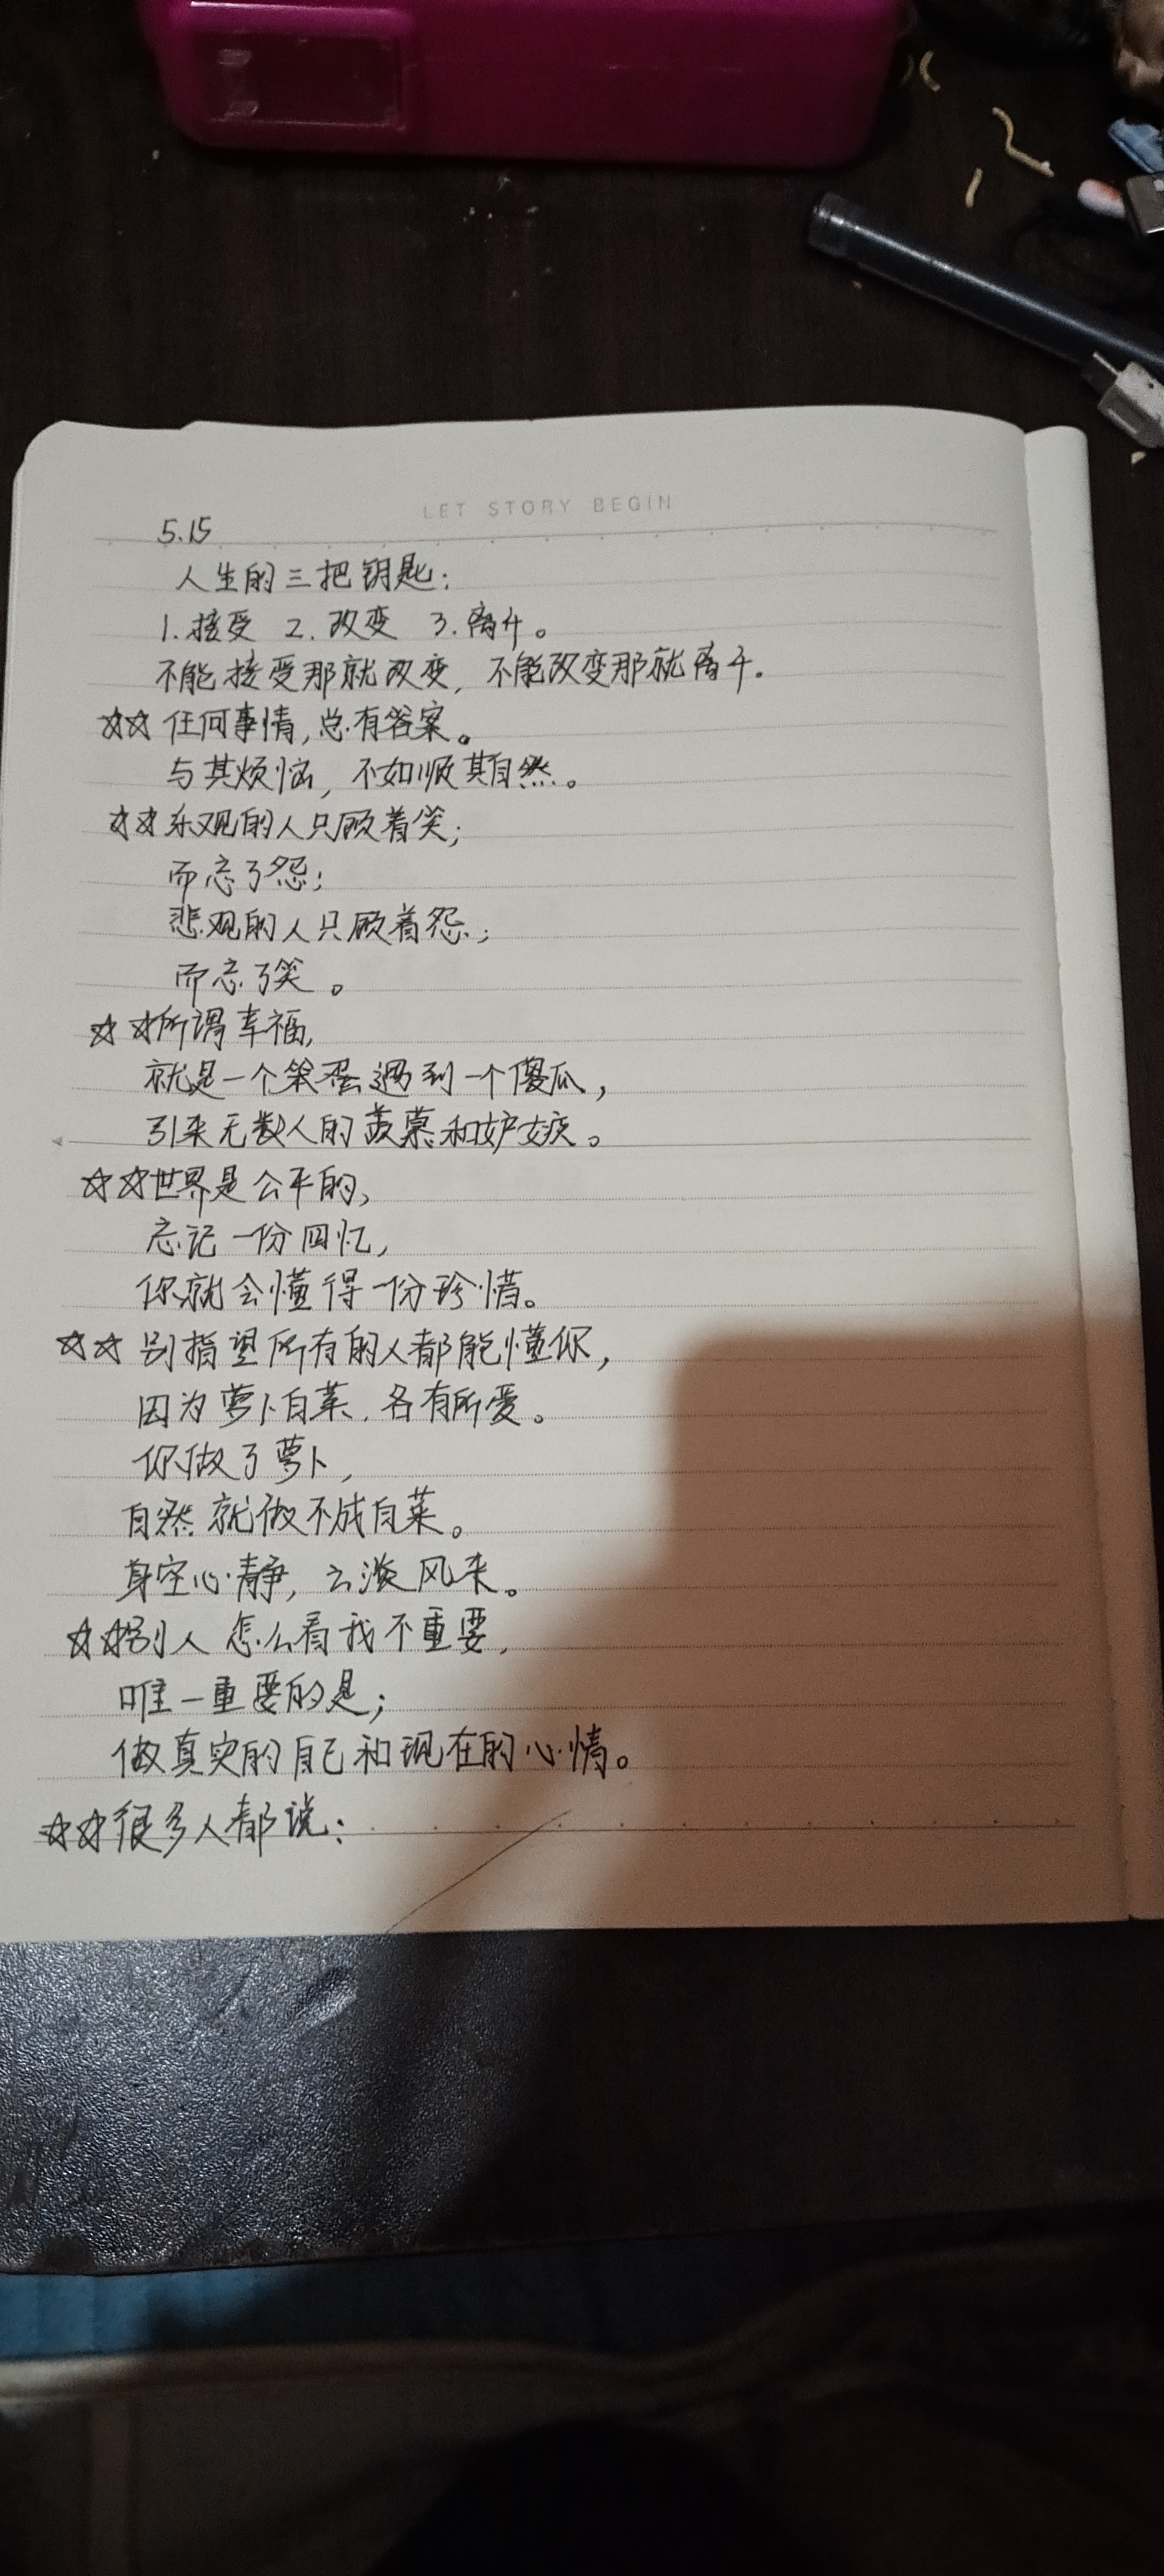 LET STORY BEGIN
5.15
人生的三把钥匙:
1.接受 2.改变 3.离开。
不能接受那就改变, 不能改变那就离开。
☆☆任何事情,总有答案。
与其烦恼, 不如顺其自然。
☆☆乐观的人只顾着笑;
而忘了怨;
悲观的人只顾着怨;
而忘了笑。
☆☆所谓幸福,
就是一个笨蛋遇到一个傻瓜,
引来无数人的羡慕和妒嫉。
☆☆世界是公平的,
忘记一份回忆,
你就会懂得一份珍惜。
☆☆别指望所有的人都能懂你,
因为萝卜白菜,各有所爱。
你做了萝卜,
自然就做不成白菜。
身安心静,云淡风来。
☆☆别人怎么看我不重要,
唯一重要的是;
做真实的自己和现在的心情。
☆☆很多人都说: